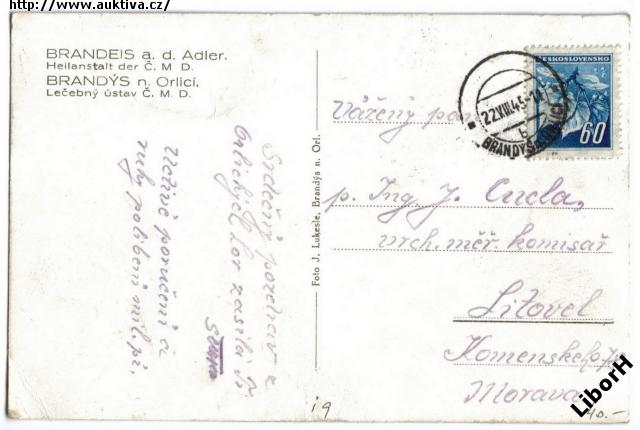 http://www.auktiva.cz/
BRANDEIS a. d. Adler.
Heilanstalt der Č. M. D.
BRANDÝS n. Orlicí.
Lečebný ústav Č. M. D.
Srdečný pozdrav z
Orlických hor zasílá
Uctivé poručení a
ruky políbení mil. pí.
Foto J. Lukesle, Brandýs n. Orl.
ČESKOSLOVENSKO
60
22.VIII.45
b
BRANDÝS
Vážený pan
p. Ing. J. Cucla,
vrch. měř. komisař
Litovel
Komenského
Morava
19
40.-
LiborH